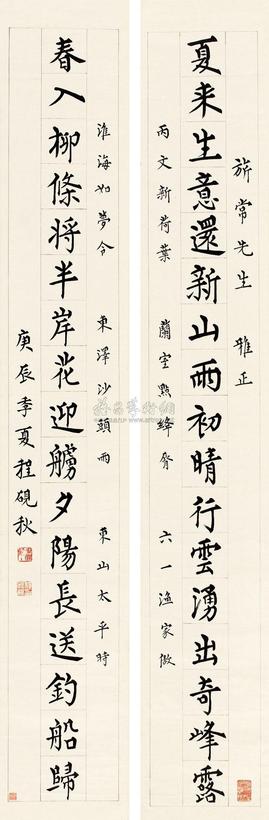 旂常先生 雅正
夏来生意還新山雨初晴行雲湧出奇峰露
雨文新荷葉 蘭室點絳脣 六一漁家傲
淮海如夢令 東澤沙頭雨 東山太平時
春入柳條將半岸花迎艣夕陽長送釣船歸
庚辰季夏程硯秋